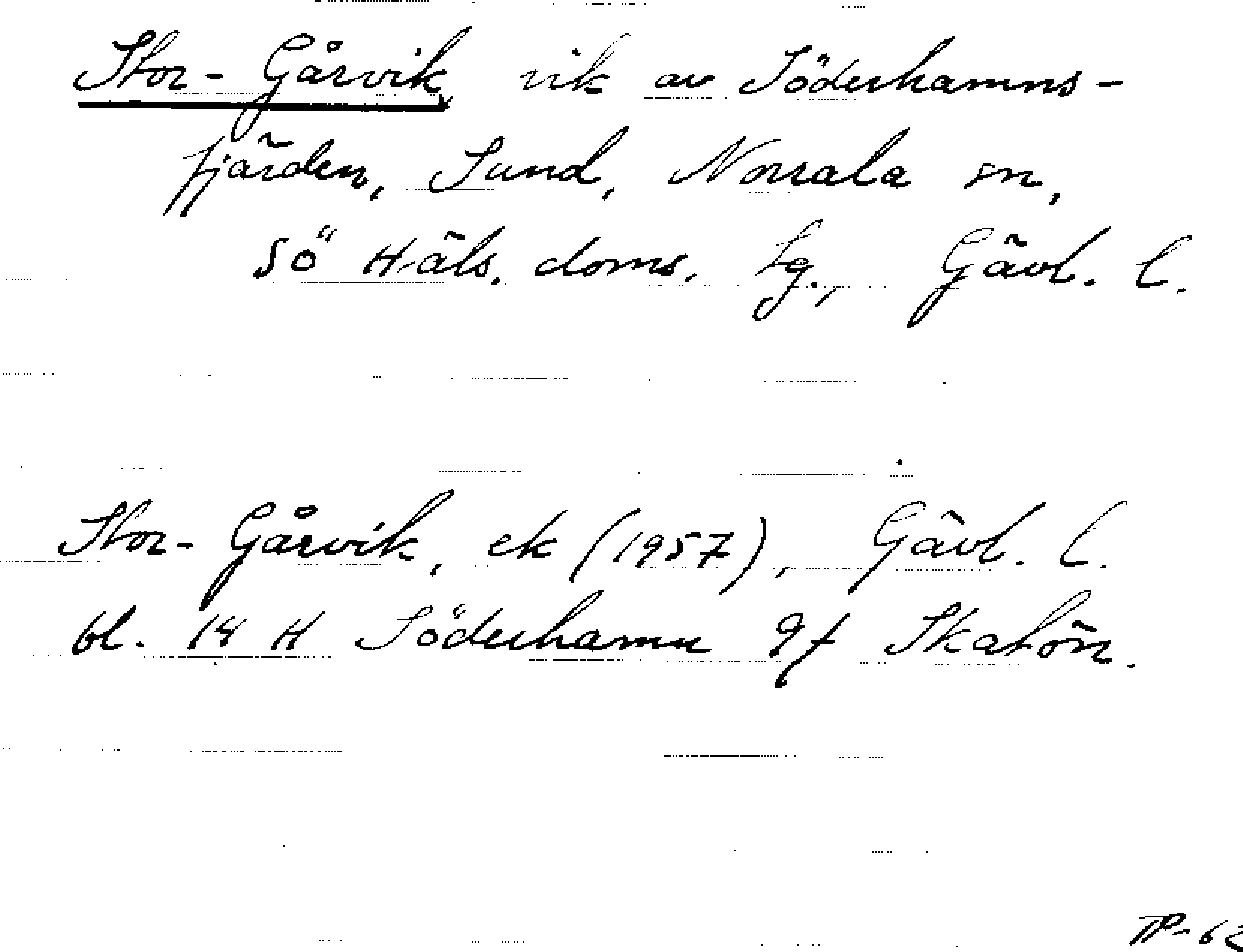 Stor-Gårvik, vik av Söderhamns-
fjärden, Sund, Norrala sn,
Sö Häls. doms. lg., Gävl. l.
Stor-Gårvik, ek (1957), Gävl. l.
bl. 14 H Söderhamn 9f Skatön.